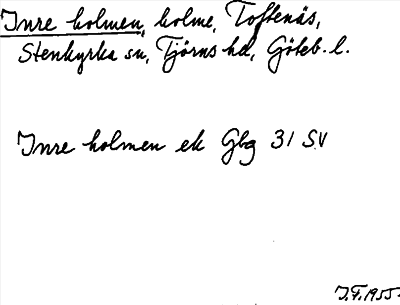 Inre holmen, holme, Toftenäs,
Stenkyrka sn, Tjörns hd, Göteb. l.
Inre holmen ek Gbg 31 SV
J.F. 1955.